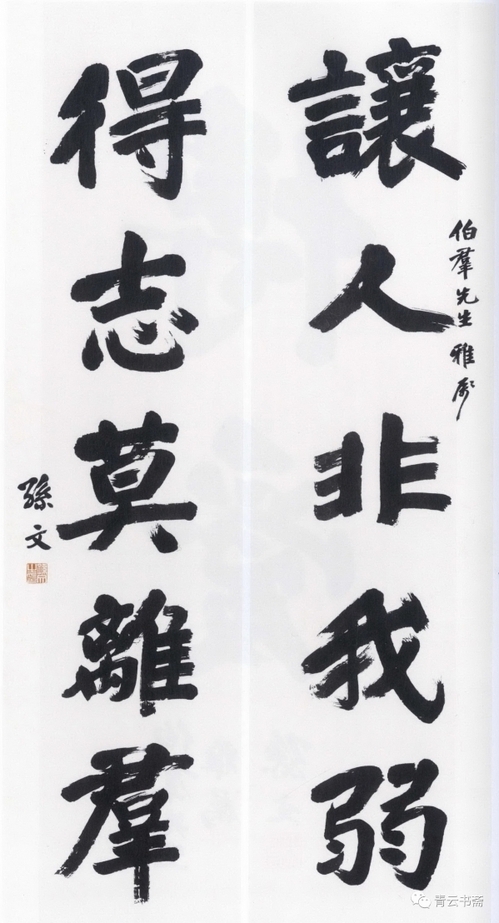 讓人非我弱
伯羣先生雅屬
得志莫離羣
孫文
青云书斋